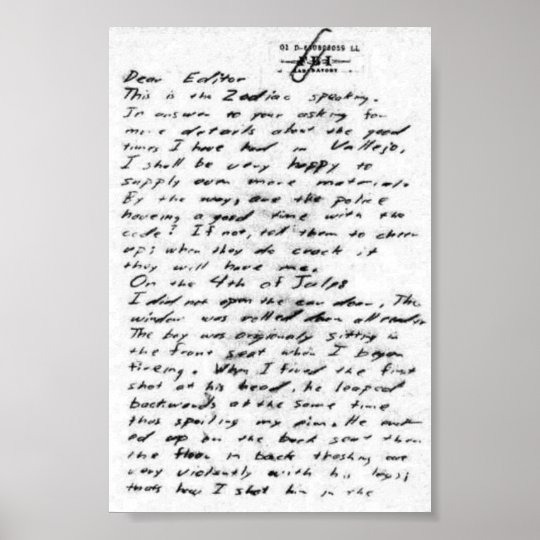 FBI
LABORATORY
Dear Editor
This is the Zodiac speaking.
In answer to your asking for
more details about the good
times I have had in Vallejo,
I shall be very happy to
supply even more material.
By the way, are the police
haveing a good time with the
code? If not, tell them to cheer
up; when they do crack it
they will have me.
On the 4th of July:
I did not open the car door, The
window was rolled down all ready.
The boy was origionaly sitting in
the front seat when I began
fireing. When I fired the first
shot at his head, he leaped
backwards at the same time
thus spoiling my aim. He end
ed up on the back seat then
the floor in back thashing out
very violently with his legs;
thats how I shot him in the